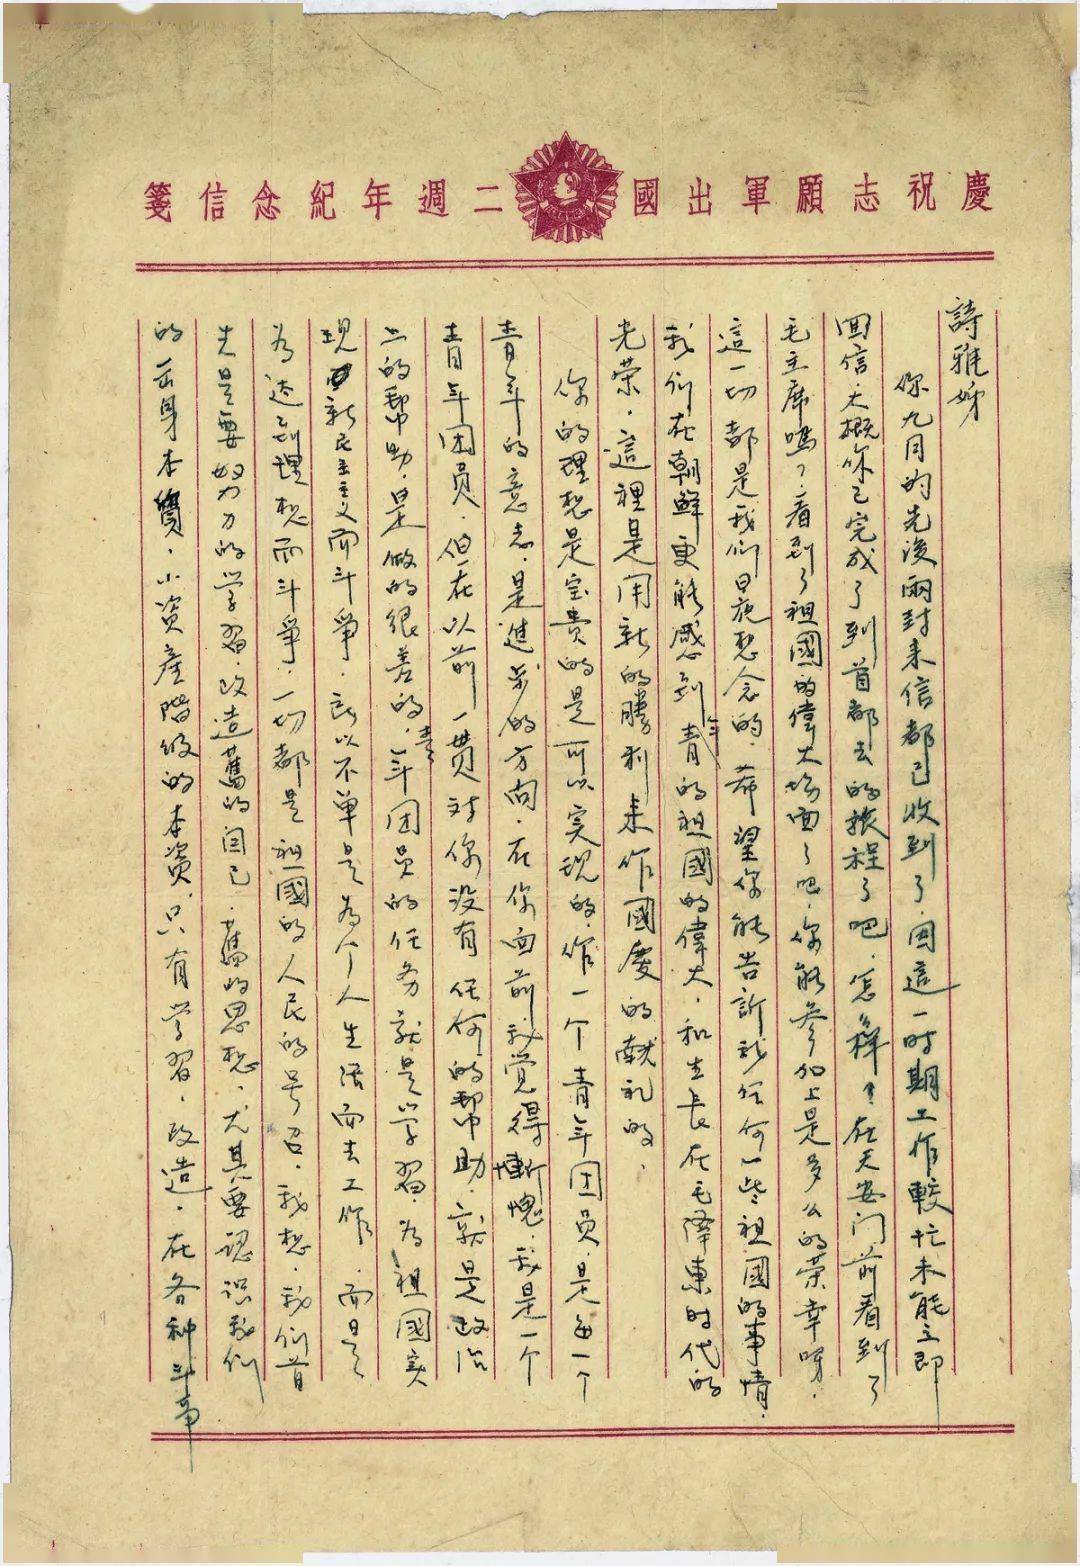 慶祝志願軍出國二週年紀念信箋
詩雅姊
你九月的先後兩封来信都已收到了，因這一时期工作較忙未能立即
回信，大概你已完成了到首都去的旅程了吧，怎样？在天安门前看到了
毛主席嗎？看到了祖國的偉大場面了吧，你能參加上是多么的荣幸呀，
這一切都是我们日夜想念的，希望你能告訴我任何一些祖國的事情，
我们在朝鮮更能感到青年的祖國的偉大，和生長在毛澤東时代的
光荣，這裡是用新的勝利来作國慶的献礼的，
你的理想是宝贵的是可以实现的，作一个青年团员，是每一个
青年的意志，是進步的方向，在你面前我觉得慚愧，我是一个
青年团员，但在以前一贯对你没有任何的帮助，就是政治
上的帮助，是做的很差的，青年团员的任务就是学習，为祖國实
现新民主主义而斗爭，所以不单是为个人生活而去工作，而是
为达到理想而斗爭，一切都是祖國的人民的号召，我想，我们首
先是要努力的学習，改造舊的自己，舊的思想，尤其要認识我们
的出身本質，小資產階级的本資，只有学習，改造，在各种斗爭